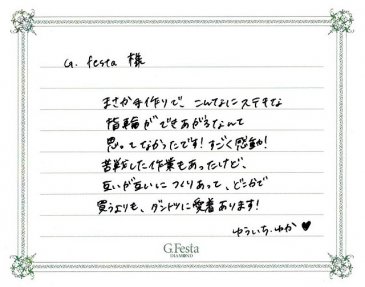 G. festa 様
まさか手作りで、こんなにステキな
指輪ができあがるなんて
思ってなかったです!すごく感動!
苦戦した作業もあったけど、
互いが互いにつくりあって、どこかで
買うよりも、ダントツに愛着あります!
ゆういち・ゆか ♥
G.Festa
DIAMOND